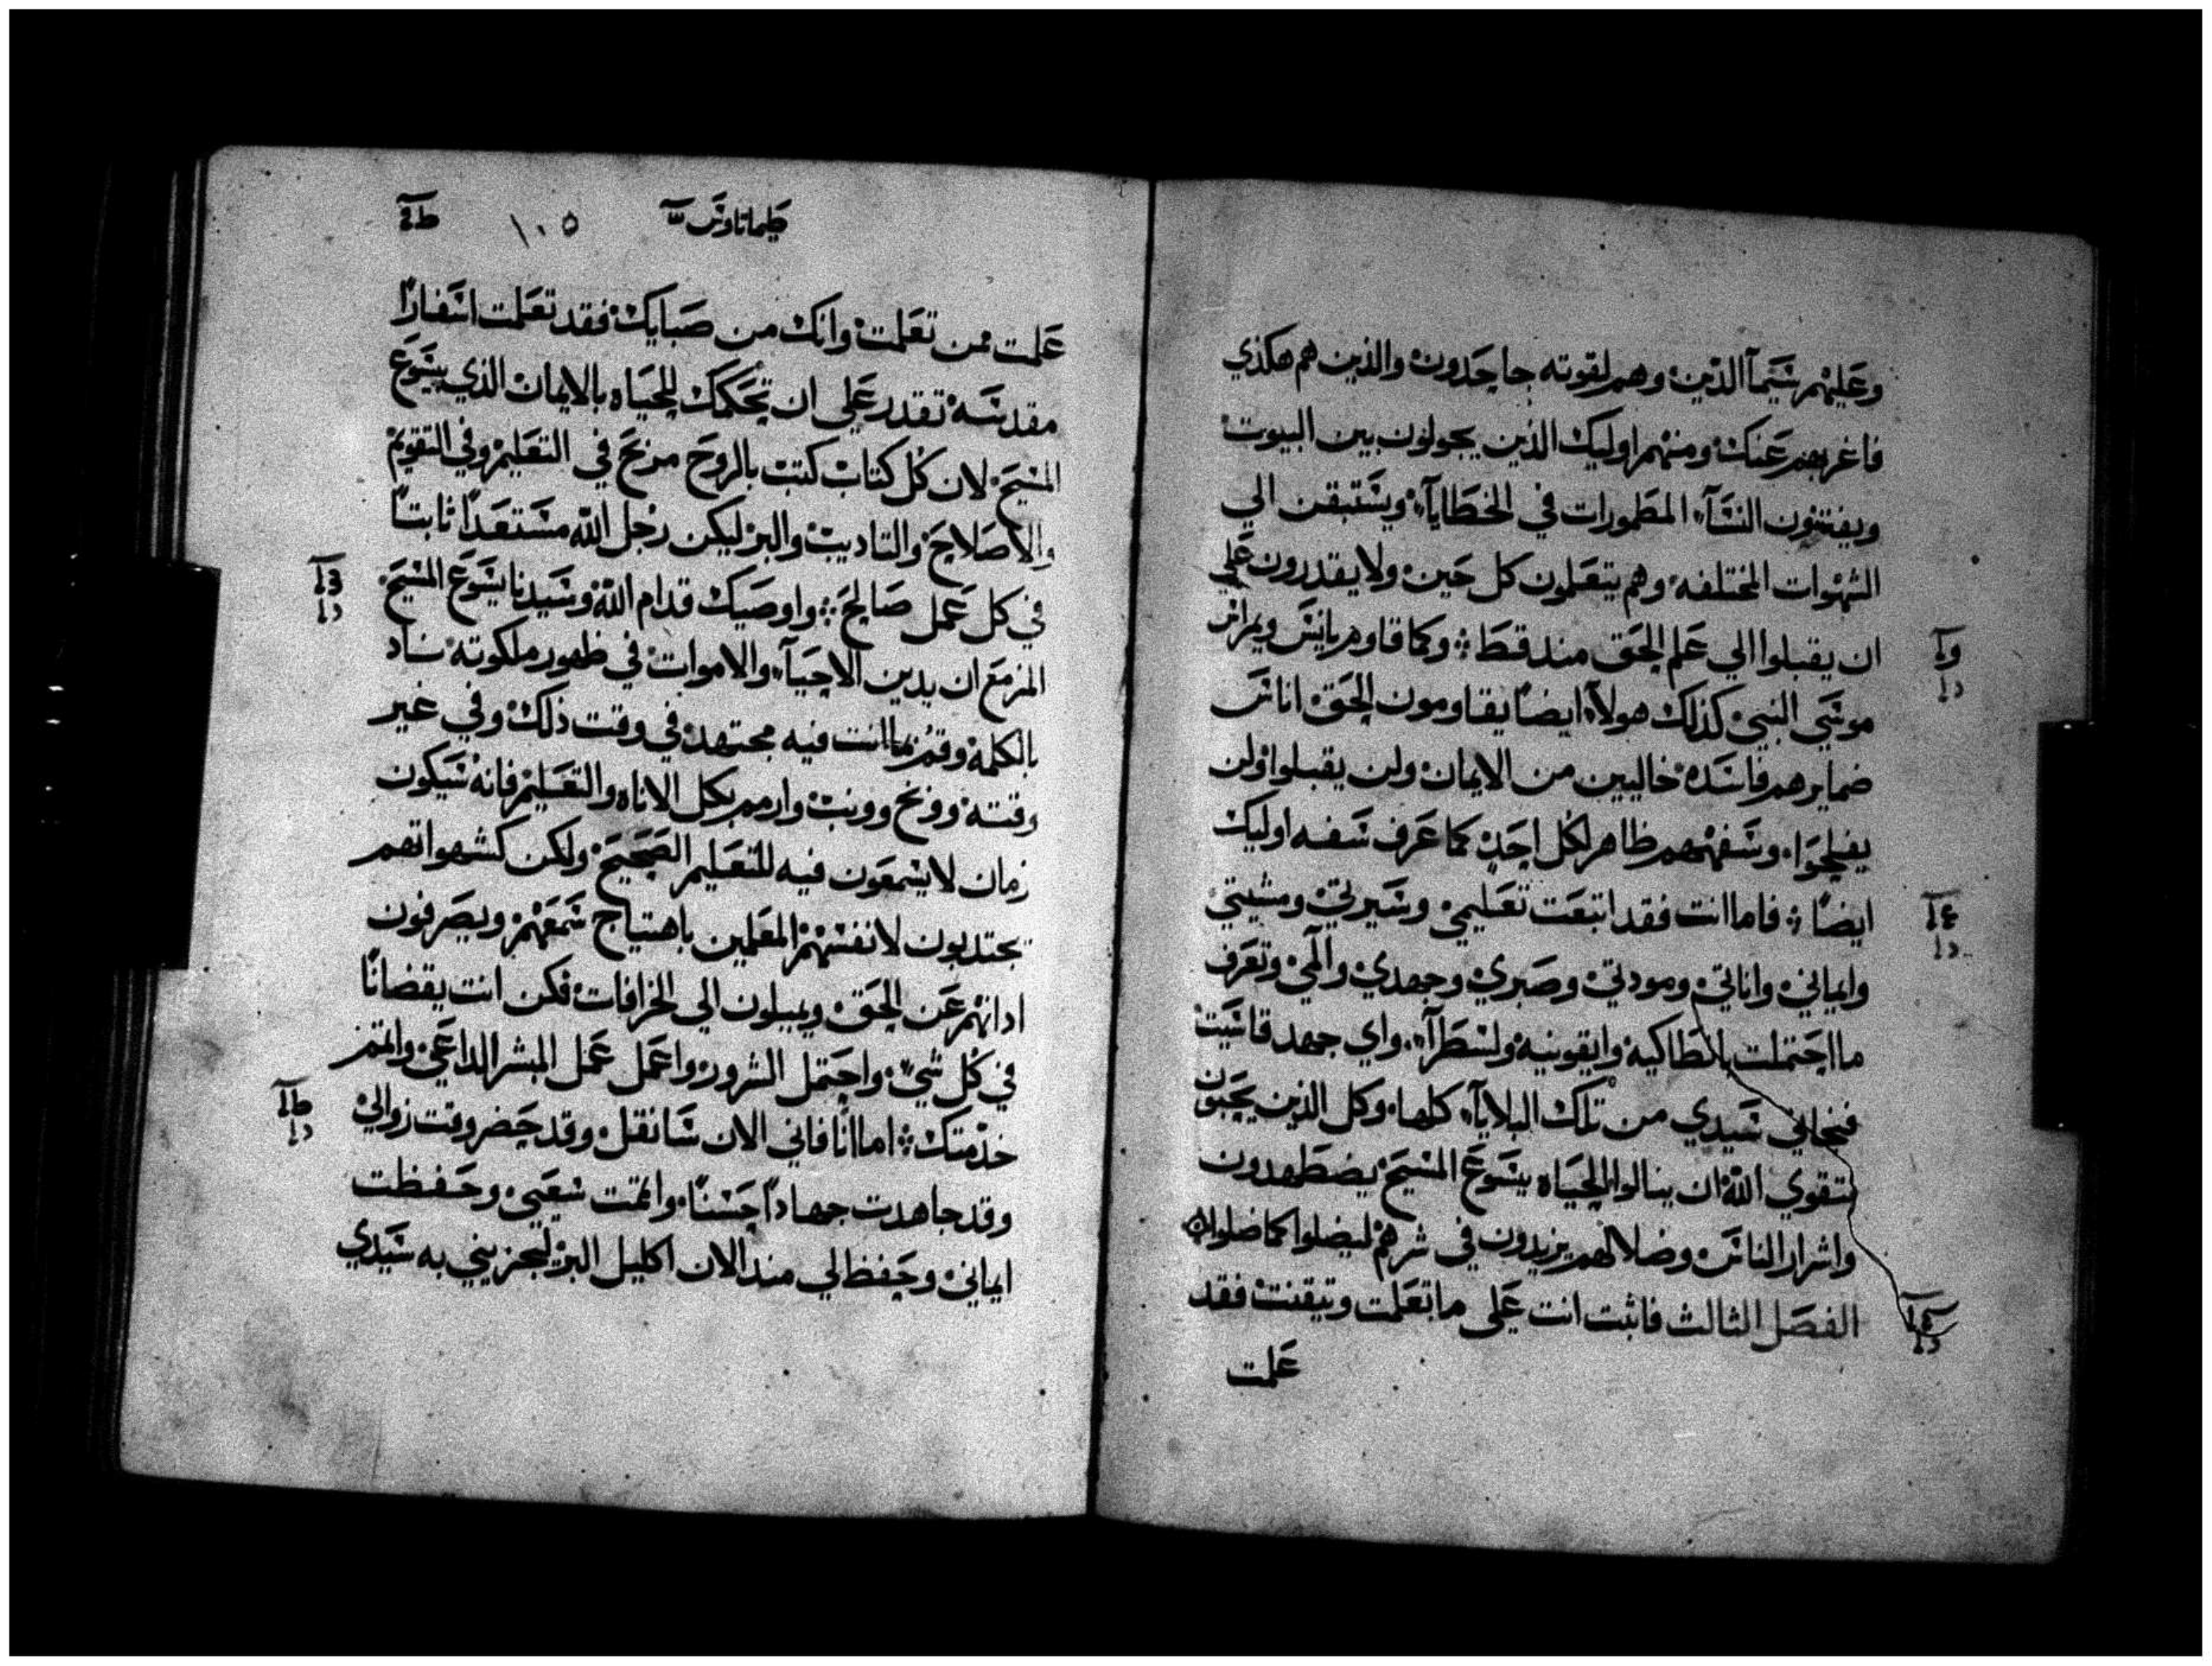 وعليهم سيما الدين وهم لقوته جاحدون والذين هم هكذي
فاغربهم عنك ومنهم اوليك الذين يجولون بين البيوت
ويفتنون النسآء المطمورات في الخطايآ ويستبقن الي
الشهوات المختلفه وهم يتعلمون كل حين ولا يقدرون علي
ان يقبلوا الي علم الحق مند قط ؞ وكما قاوم يانيس ويمراس
موسي النبي كذلك هولآء ايضا يقاومون الحق اناس
ضمايرهم فاسده خاليين من الايمان ولن يقبلوا ولن
يفلحوا وسفههم ظاهر لكل احد كما عرف سفه اوليك
ايضا ؞ فاما انت فقد اتبعت تعليمي وسيرتي ومشيتي
وايماني واناتي ومودتي وصبري وجهدي وآلمي وتعرف
ما احتملت بانطاكيه وايقونيه ولسطرآ واي جهد قاسيت
فنجاني سيدي من تلك البلايآ كلها وكل الذين يحبون
بتقوي الله ان ينالوا الحياه بيسوع المسيح يضطهدون
واشرار الناس وضلالهم يزيدون في شرهم ليضلوا كما ضلوا
الفصل الثالث فاثبت انت علي ما تعلمت وتيقنت فقد
علمت
طيماتاوس
١٠٥
علمت ممن تعلمت وانك من صبايك فقد تعلمت اسفارًا
مقدسه تقدر علي ان تحكمك للحياه بالايمان الذي بيسوع
المسيح لان كل كتاب كتب بالروح مربح في التعليم وفي التقويم
والاصلاح والتاديب والبر ليكن رجل الله مستعدًا ثابتًا
في كل عمل صالح ؞ واوصيك قدام الله وسيدنا يسوع المسيح
المزمع ان يدين الاحيآء والاموات في ظهور ملكوته ناد
بالكلمة وقم بما انت فيه مجتهد في وقت ذلك وفي غير
وقته ووبخ وونب وارمم بكل الاناه والتعليم فانه سيكون
زمان لا يسمعون فيه للتعليم الصحيح ولكن كشهواتهم
يجتدبون لانفسهم المعلمين باهتياج سمعهم ويصرفون
ادانهم عن الحق ويميلون الي الخرافات فكن انت يقضانًا
في كل شيء واحتمل الشرور واعمل عمل المبشر الداعي واتمم
خدمتك ؞ اما انا فاني الان سانقل وقد حضر وقت زوالي
وقد جاهدت جهادًا حسنًا واتممت سعيي وحفظت
ايماني وحفظ لي مند الان اكليل البر ليجزيني به سيدي